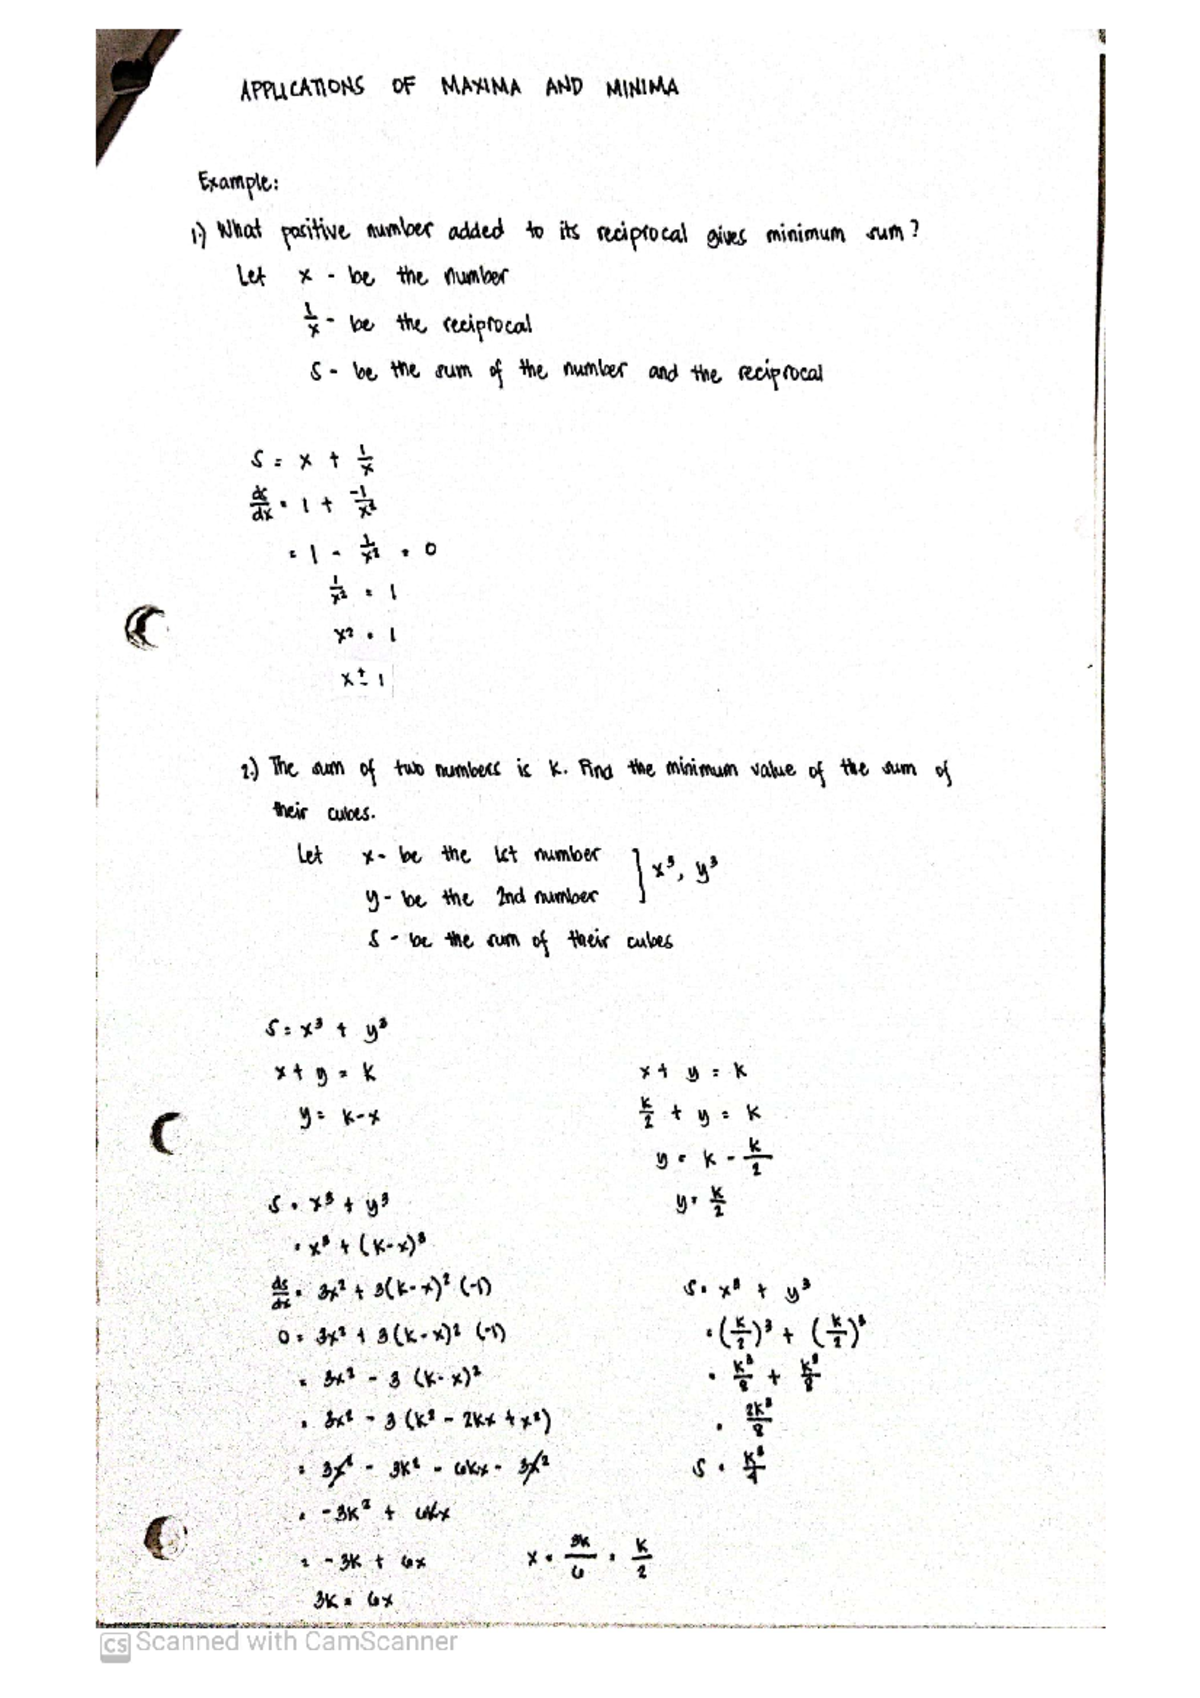 APPLICATIONS OF MAXIMA AND MINIMA
Example:
1.) What positive number added to its reciprocal gives minimum sum?
Let x - be the number
1/x - be the reciprocal
S - be the sum of the number and the reciprocal
S = x + 1/x
ds/dx = 1 + -1/x²
= 1 - 1/x² = 0
1/x² = 1
x² = 1
x ± 1
2.) The sum of two numbers is K. Find the minimum value of the sum of
their cubes.
Let x - be the 1st number
y - be the 2nd number
] x³, y³
S - be the sum of their cubes
S = x³ + y³
x + y = K
y = K-x
S = x³ + y³
= x³ + (K-x)³
ds/dx = 3x² + 3(K-x)² (-1)
0 = 3x² + 3(K-x)² (-1)
= 3x² - 3 (K-x)²
= 3x² - 3 (K² - 2Kx + x²)
= 3x² - 3K² - 6Kx - 3x²
= -3K² + 6Kx
= -3K + 6x
3K = 6x
x = 3K/6 = K/2
x + y = K
K/2 + y = K
y = K - K/2
y = K/2
S = x³ + y³
= (K/2)³ + (K/2)³
= K³/8 + K³/8
= 2K³/8
S = K³/4
CS Scanned with CamScanner